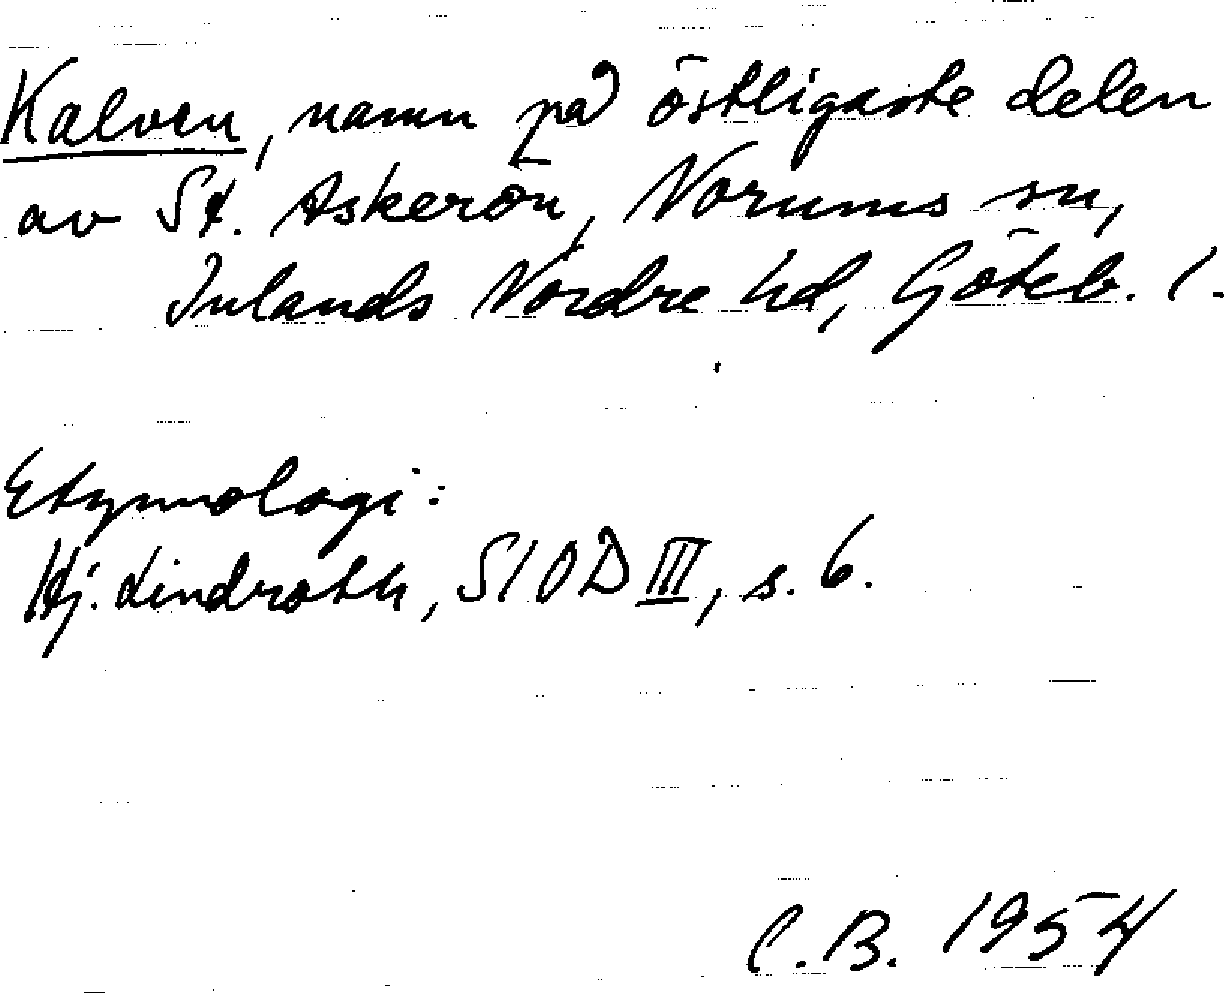 Kalven, namn på östligaste delen
av St. Askerön, Norums sn,
Inlands Nordre hd, Göteb. l.
Etymologi:
Hj. Lindroth, SIOD III, s. 6.
C.B. 1954